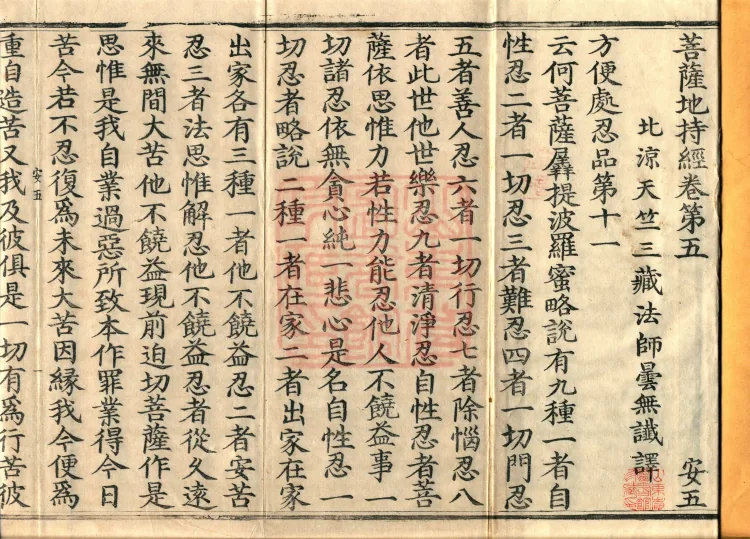 菩薩地持經卷第五 安五
北涼天竺三藏法師曇無讖譯
方便處忍品第十一
云何菩薩羼提波羅蜜略說有九種一者自
性忍二者一切忍三者難忍四者一切門忍
五者善人忍六者一切行忍七者除惱忍八
者此世他世樂忍九者清淨忍自性忍者菩
薩依思惟力若性力能忍他人不饒益事一
切諸忍依無貪心純一悲心是名自性忍一
切忍者略說二種一者在家二者出家在家
出家各有三種一者他不饒益忍二者安苦
忍三者法思惟解忍他不饒益忍者從久遠
來無間大苦他不饒益現前迫切菩薩作是
思惟是我自業過惡所致本作罪業得今日
苦今若不忍復爲未來大苦因縁我今便爲
安五
重自造苦又我及彼俱是一切有爲行苦彼